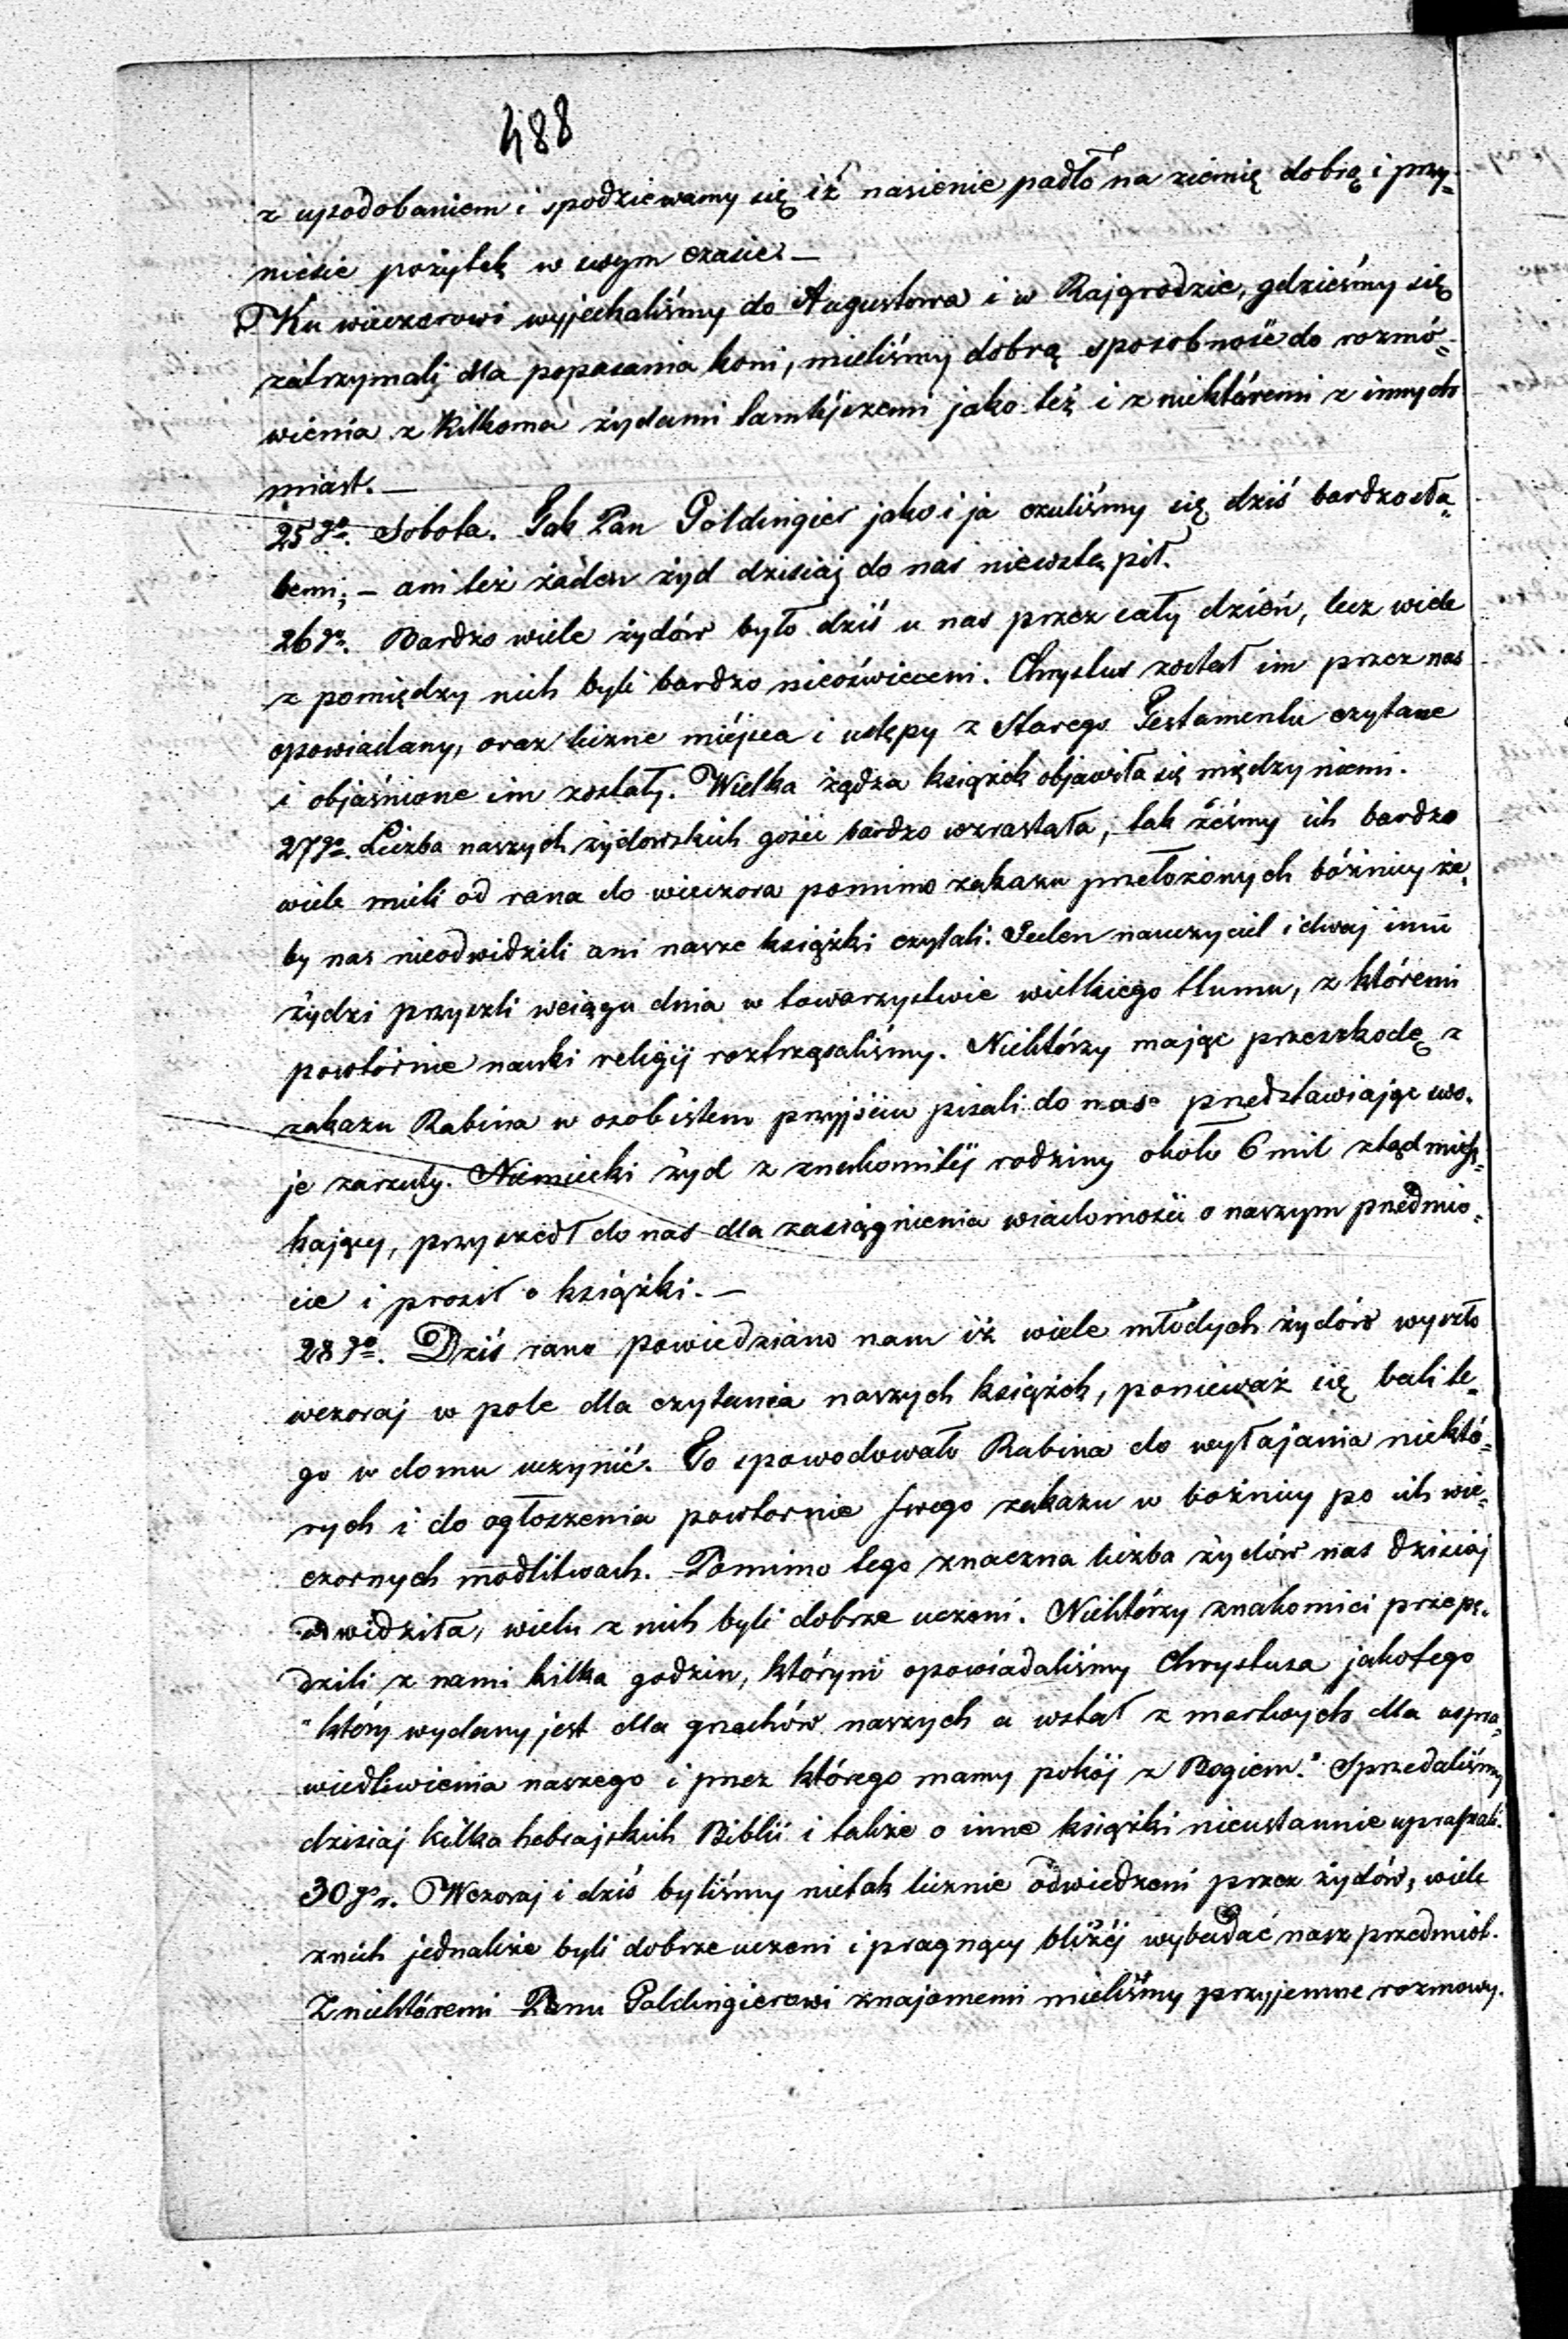 488
z upodobaniem i spodziewamy się iż nasienie padło na ziemię dobrą i przy„
niesie pożytek w swym czasie. —
Ku wieczorowi wyjechaliśmy do Augustowa i w Rajgrodzie, gdzieśmy się
zatrzymali dla popasania koni, mieliśmy dobrą sposobność do rozmó„
wienia z kilkoma żydami tamtéjszemi jako téż i z niektóremi z innych
miast. —
25go. Sobota. Tak Pan Goldingier jako i ja czuliśmy się dziś bardzo sła„
bemi; — ani też żaden żyd dzisiaj do nas niewstąpił.
26go. Bardzo wiele żydów było dziś u nas przez cały dzień, lecz wiele
z pomiędzy nich byli bardzo nieoświeceni. Chrystus został im przez nas
opowiadany, oraz liczne miéjsca i ustępy z Starego Testamentu czytane
i objaśnione im zostały. Wielka żądza książek objawiła się między niemi.
27go. Liczba naszych żydowskich gości bardzo wzrastała, tak żeśmy ich bardzo
wiele mieli od rana do wieczora pomimo zakazu przełożonych bóżnicy że„
by nas nieodwidzili ani nasze książki czytali. Jeden nauczyciel i dwaj inni
żydzi przyszli wciągu dnia w towarzystwie wielkiego tłumu, z któremi
powtórnie nauki religij roztrząsaliśmy. Niektórzy mając przeszkodę z
zakazu Rabina w osobistem przyjściu pisali do nas przedstawiając swo„
je zarzuty. Niemiecki żyd z znakomitéj rodziny około 6 mil ztąd miesz„
kający, przyszedł do nas dla zasiągnienia wiadomości o naszym przedmio„
cie i prosił o książki. —
28go. Dziś rano powiedziano nam iż wiele młodych żydów wyszło
wczoraj w pole dla czytania naszych książek, ponieważ się bali te„
go w domu uczynić. To spowodowało Rabina do wyłajania niektó„
rych i do ogłoszenia powtornie swego zakazu w bożnicy po ich wie„
czornych modlitwach. Pomimo tego znaczna liczba żydów nas dzisiaj
odwidziła, wielu z nich byli dobrze uczeni. Niektórzy znakomici przepę„
dzili z nami kilka godzin, którym opowiadaliśmy Chrystusa jako tego
"który wydany jest dla grzechów naszych a wstał z martwych dla uspra„
wiedliwienia naszego i przez którego mamy pokój z Bogiem." Sprzedaliśmy
dzisiaj kilka hebrajskich Biblii i także o inne książki nieustannie upraszali.
30go. Wczoraj i dziś byliśmy nietak licznie odwiedzeni przez żydów, wiele
znich jednakże byli dobrze uczeni i pragnący bliżéj wybadać nasz przedmiot.
Z niektóremi Panu Goldingierowi znajomemi mieliśmy przyjemne rozmowy.